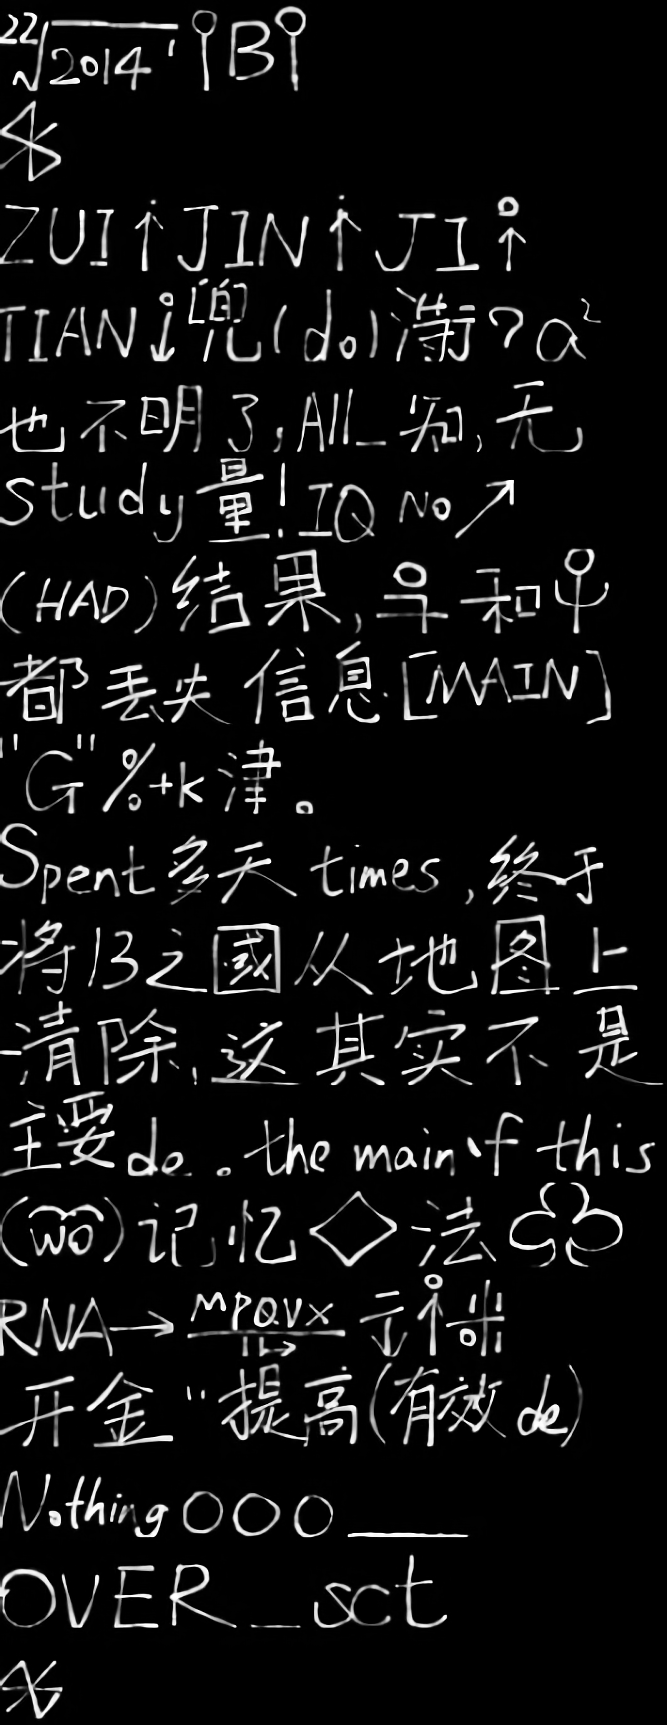 22√2014' B
ZUI↑JIN↑JI↑
TIAN↓(do)?a²
也不明了,All_知,无
study量!IQ No↗
(HAD)结果,和
都丢失信息[MAIN]
"G"%+k津。
Spent多天times,终于
将13之國从地图上
清除,这其实不是
主要de。the main'f this
(wo)记忆◇法
RNA→MPQVX
开金"提高(有效de)
Nothing○○○___
OVER_sct